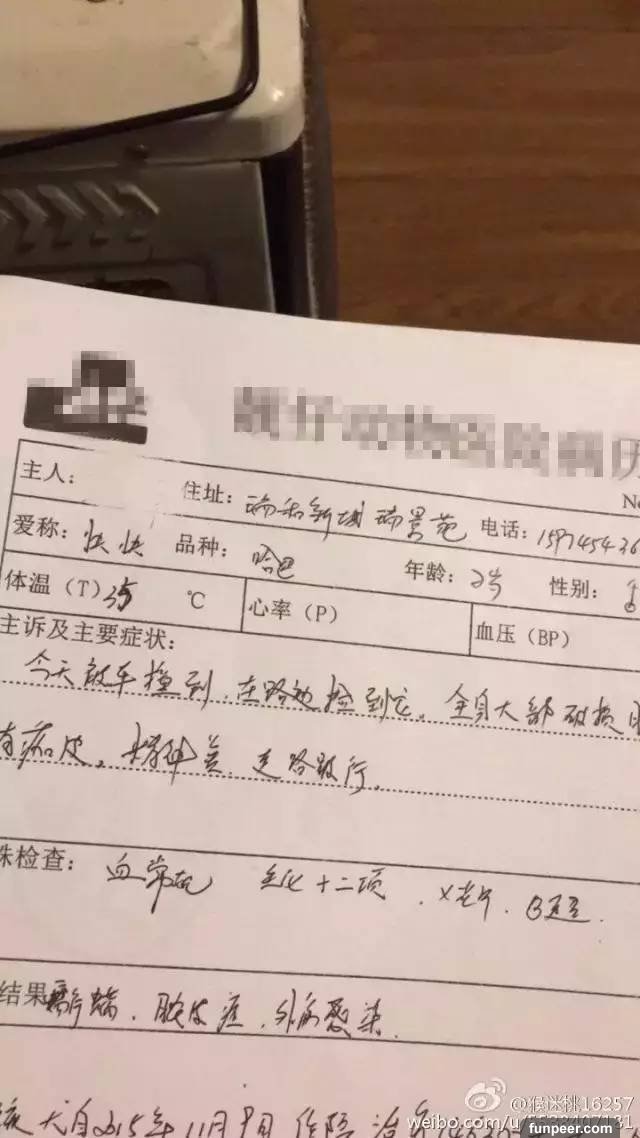 靓仔动物医院病历
No
主人： 住址：瑞和新城 瑞景苑 电话：159745436
爱称：快快 品种：哈巴 年龄：2岁 性别：
体温（T）35 ℃ 心率（P） 血压（BP）
主诉及主要症状：
今天被车撞到，在路边捡到它。全身大部破损
有痂皮，精神差，走路跛行。
殊检查：血常规 生化十二项，X光片，B超
结果 螨，脓皮症，外伤感染
该犬自2015年11月9日住院治疗
@猴迷桃16257
weibo.com/u/
funpeer.com